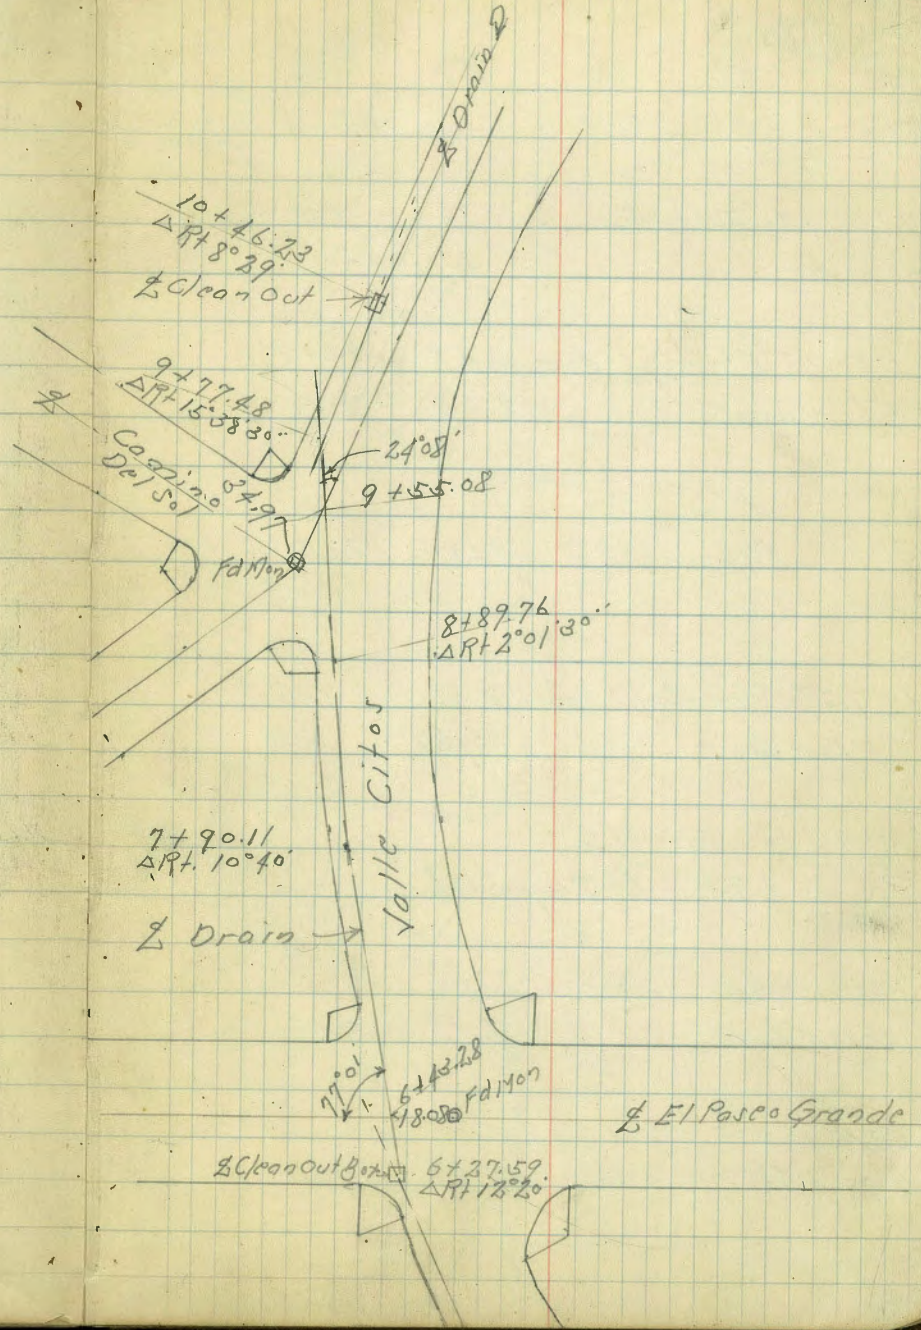 ℄ Drain
10+46.23
△Rt 8°29'
℄ Clean Out
9+77.48
△Rt 15°38'30"
℄ Camino
Del Sol
34.97
24°08'
9+55.08
Fd Mon
8+89.76
△Rt 2°01'30"
Valle Citos
7+90.11
△Rt. 10°40'
℄ Drain
77°01'
6+43.28
18.08
Fd Mon
℄ El Paseo Grande
℄ Clean Out Box
6+27.59
△Rt 12°20'